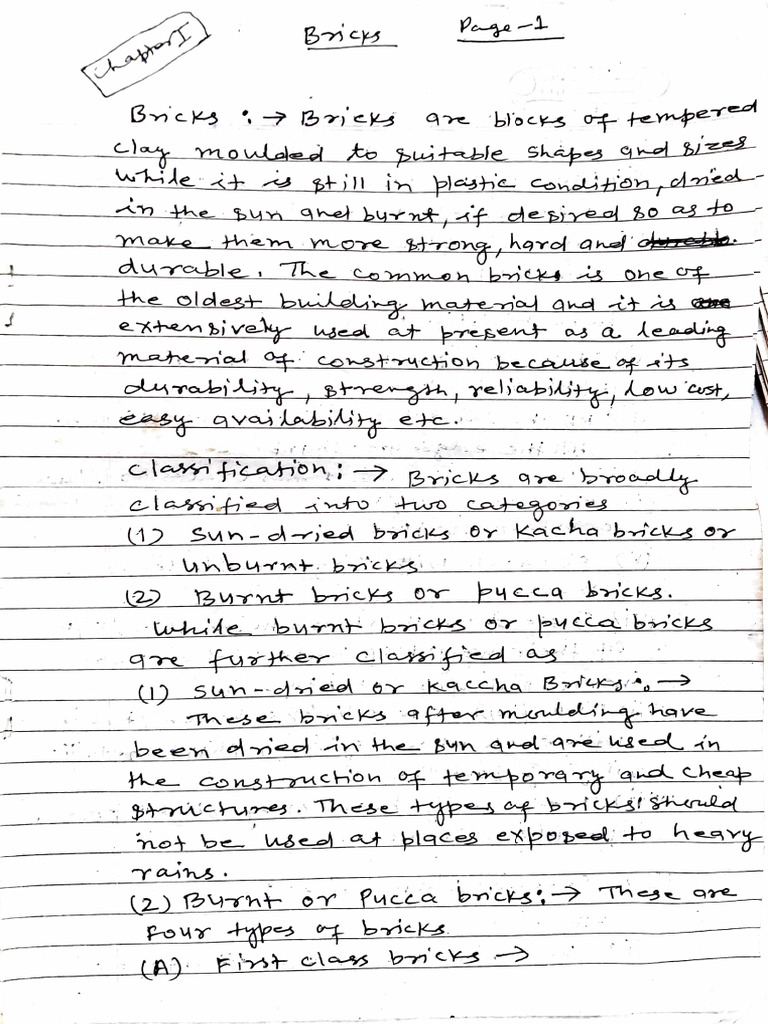 Chapter I
Bricks Page-1
Bricks :→ Bricks are blocks of tempered
clay moulded to suitable shapes and sizes
while it is still in plastic condition, dried
in the sun and burnt, if desired so as to
make them more strong, hard and
durable. The common bricks is one of
the oldest building material and it is
extensively used at present as a leading
material of construction because of its
durability, strength, reliability, low cost,
easy availability etc.
Classification: → Bricks are broadly
classified into two categories
(1) Sun-dried bricks or Kacha bricks or
unburnt bricks.
(2) Burnt bricks or pucca bricks.
While burnt bricks or pucca bricks
are further classified as
(1) Sun-dried or Kaccha Bricks :. →
These bricks after moulding have
been dried in the sun and are used in
the construction of temporary and cheap
structures. These types of bricks should
not be used at places exposed to heavy
rains.
(2) Burnt or Pucca bricks:. → These are
Four types of bricks
(A) First class bricks →